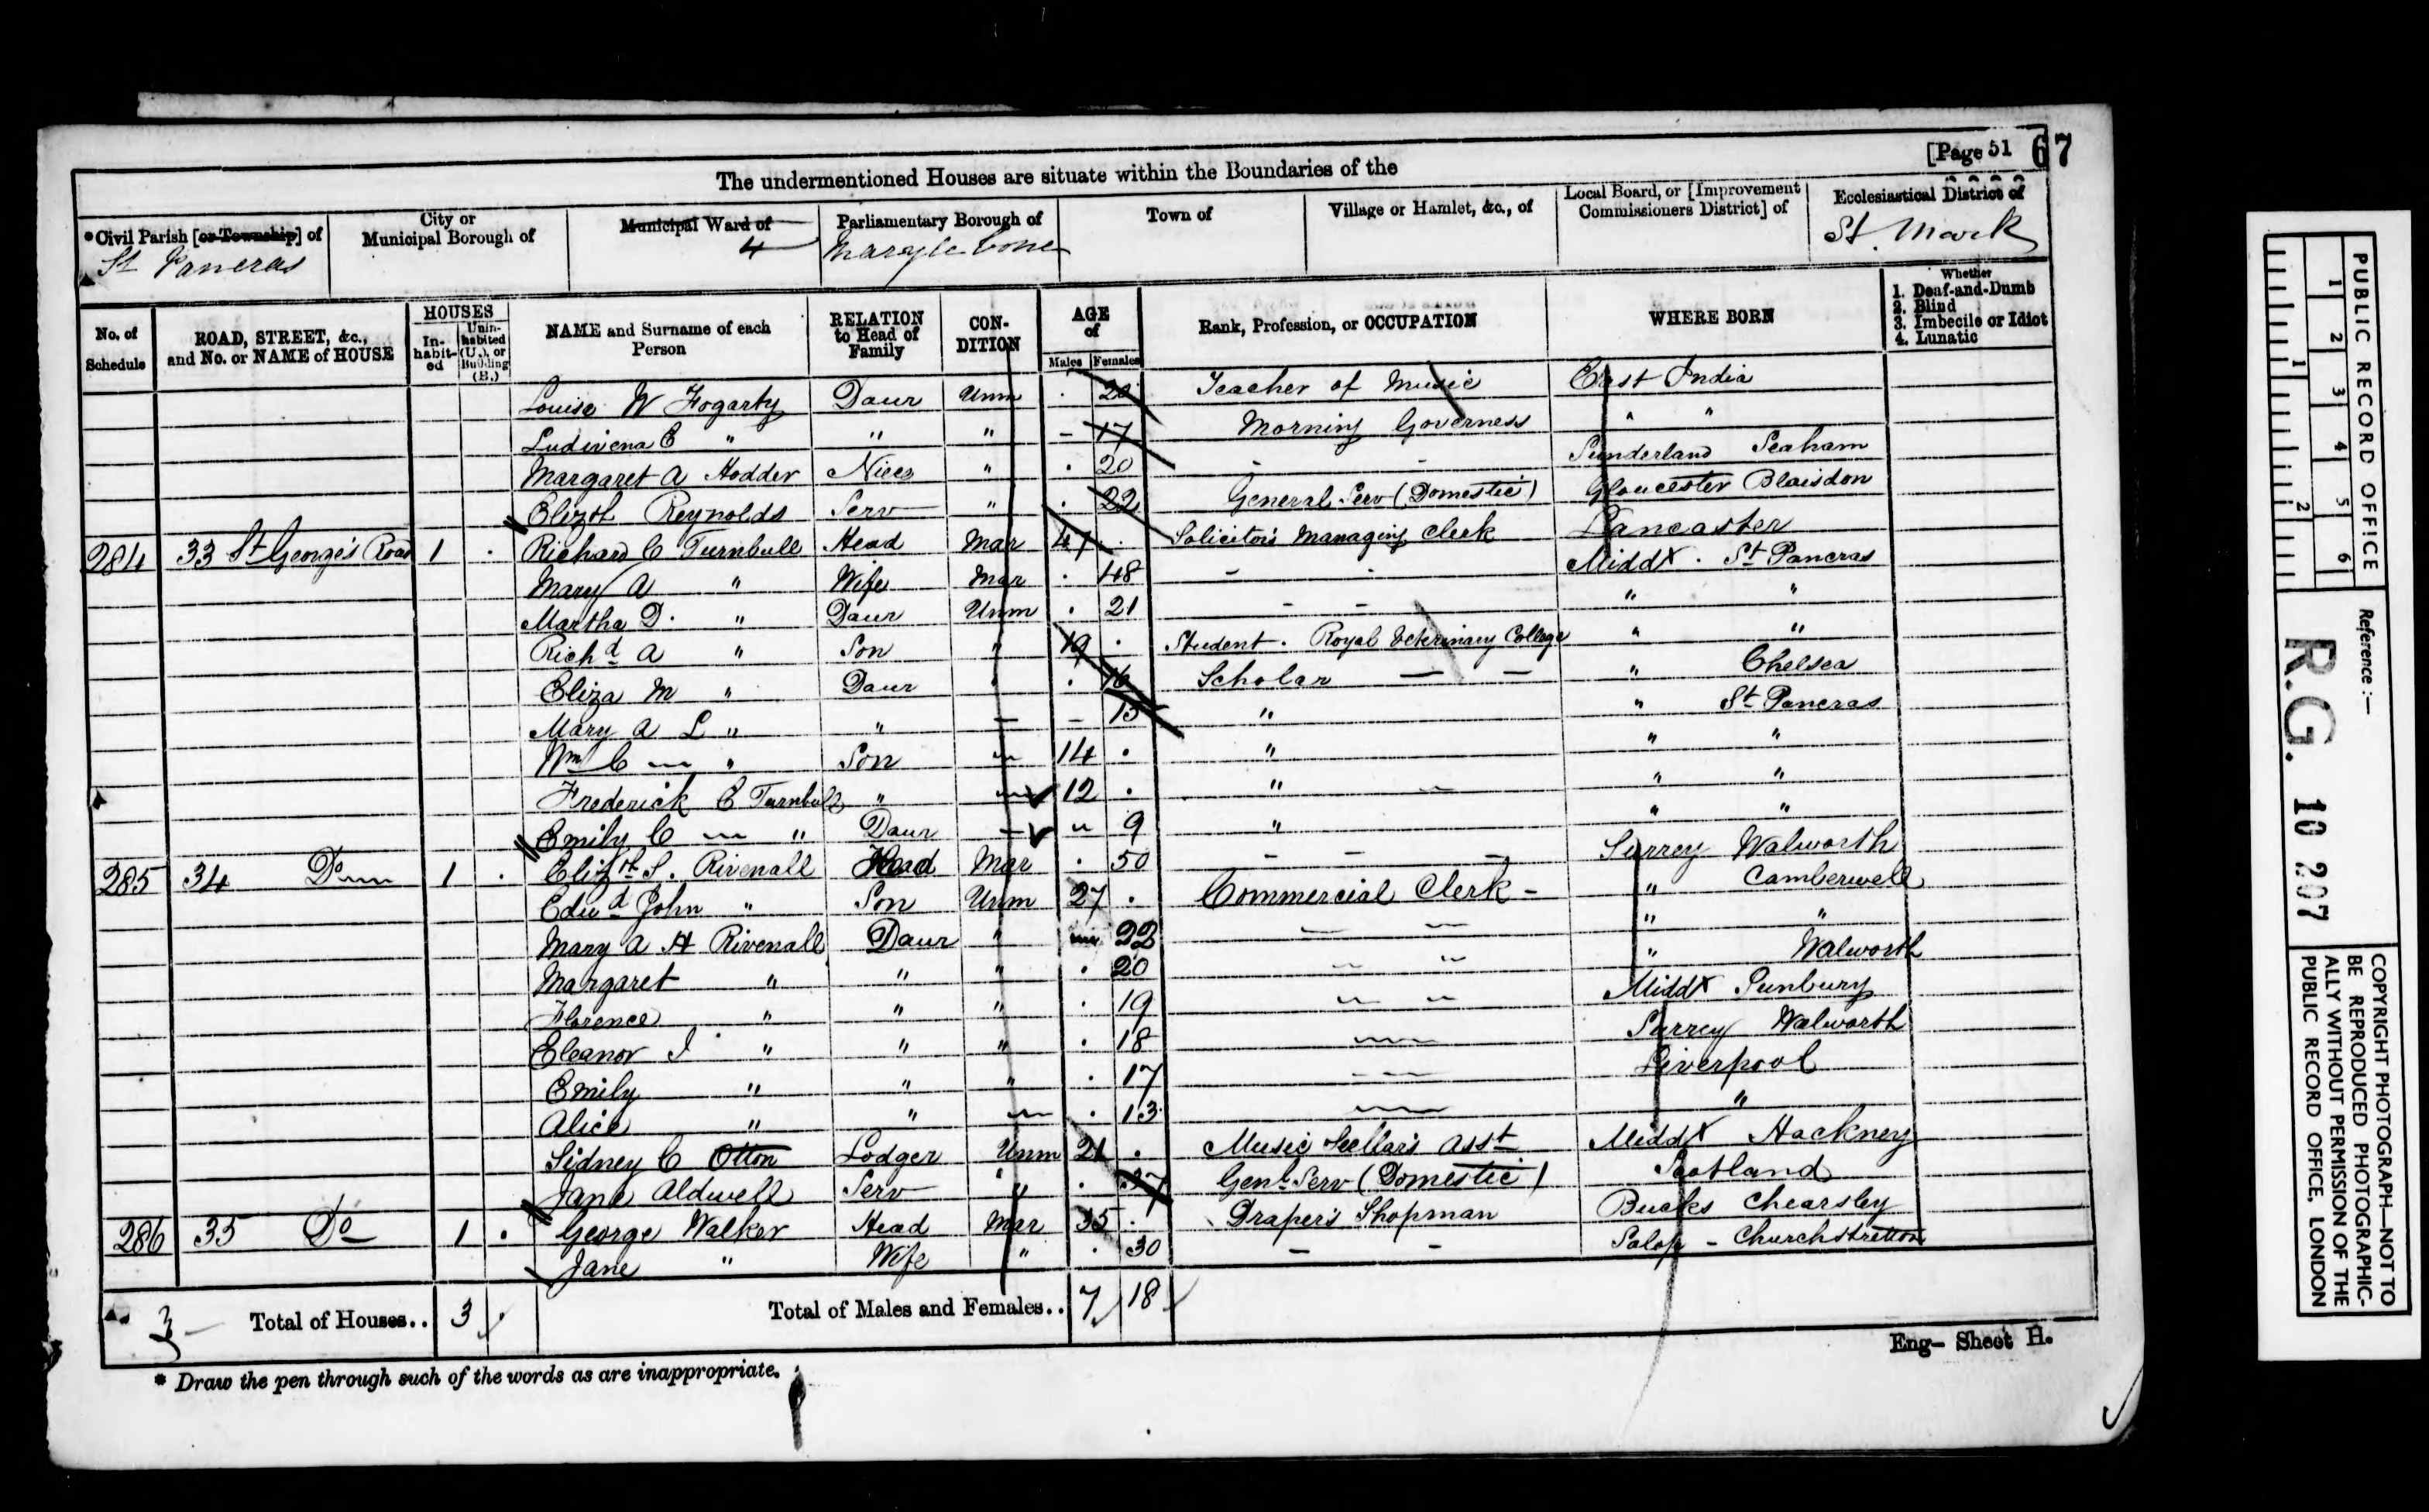 [Page 51 67
The undermentioned Houses are situate within the Boundaries of the
*Civil Parish [or Township] of City or Municipal Borough of Municipal Ward of Parliamentary Borough of Town of Village or Hamlet, &c., of Local Board, or [Improvement Commissioners District] of Ecclesiastical District of
St Pancras 4 Marylebone St. Mark
No. of Schedule ROAD, STREET, &c., and No. or NAME of HOUSE HOUSES Inhabited Uninhabited (U.), or Building (B.) NAME and Surname of each Person RELATION to Head of Family CONDITION AGE of Males Females Rank, Profession, or OCCUPATION WHERE BORN Whether 1. Deaf-and-Dumb 2. Blind 3. Imbecile or Idiot 4. Lunatic
Louisa W Fogarty Daur Unm . 20 Teacher of Music East India
Ludivena E " " " - 17 Morning Governess " "
Margaret A Hodder Niece " . 20 - - Sunderland Seaham
Elizth Reynolds Serv " . 22 General Serv (Domestic) Gloucester Blaisdon
284 33 St George's Road 1 . Richard C Turnbull Head Mar 47 . Solicitor's Managing Clerk Lancaster
Mary A " Wife Mar . 48 - - Middx . St Pancras
Martha D. " Daur Unm . 21 - - " "
Richd A " Son " 19 . Student . Royal Veterinary College " "
Eliza M " Daur " . 16 Scholar — — " Chelsea
Mary A L " " - - 15 " " St Pancras
Wm C " Son 14 . " " "
Frederick C Turnbull " 12 . " " "
Emily C " Daur - " 9 " " "
285 34 Do 1 . Elizth S. Rivenall Head Mar . 50 - - - Surrey Walworth
Edwd John " Son Unm 27 . Commercial Clerk - " Camberwell
Mary A H Rivenall Daur " 22 — — " "
Margaret " " " . 20 " Walworth
Florence " " " . 19 Middx Sunbury
Eleanor J " " " . 18 Surrey Walworth
Emily " " " . 17 Liverpool
Alice " " . 13 "
Sidney C Otton Lodger Unm 21 . Music Sellars Asst Middx Hackney
Jane Aldwell Serv " . 37 Genl Serv (Domestic) Scotland
286 35 Do 1 . George Walker Head Mar 35 . Draper's Shopman Bucks Chearsley
Jane " Wife " . 30 - - Salop - Churchstretton
3 Total of Houses.. 3 Total of Males and Females.. 7 18
Eng- Sheet H.
* Draw the pen through such of the words as are inappropriate.
PUBLIC RECORD OFFICE
1 2 3 4 5 6
1 2
Reference :—
R.G. 10 207
COPYRIGHT PHOTOGRAPH—NOT TO
BE REPRODUCED PHOTOGRAPHIC-
ALLY WITHOUT PERMISSION OF THE
PUBLIC RECORD OFFICE, LONDON